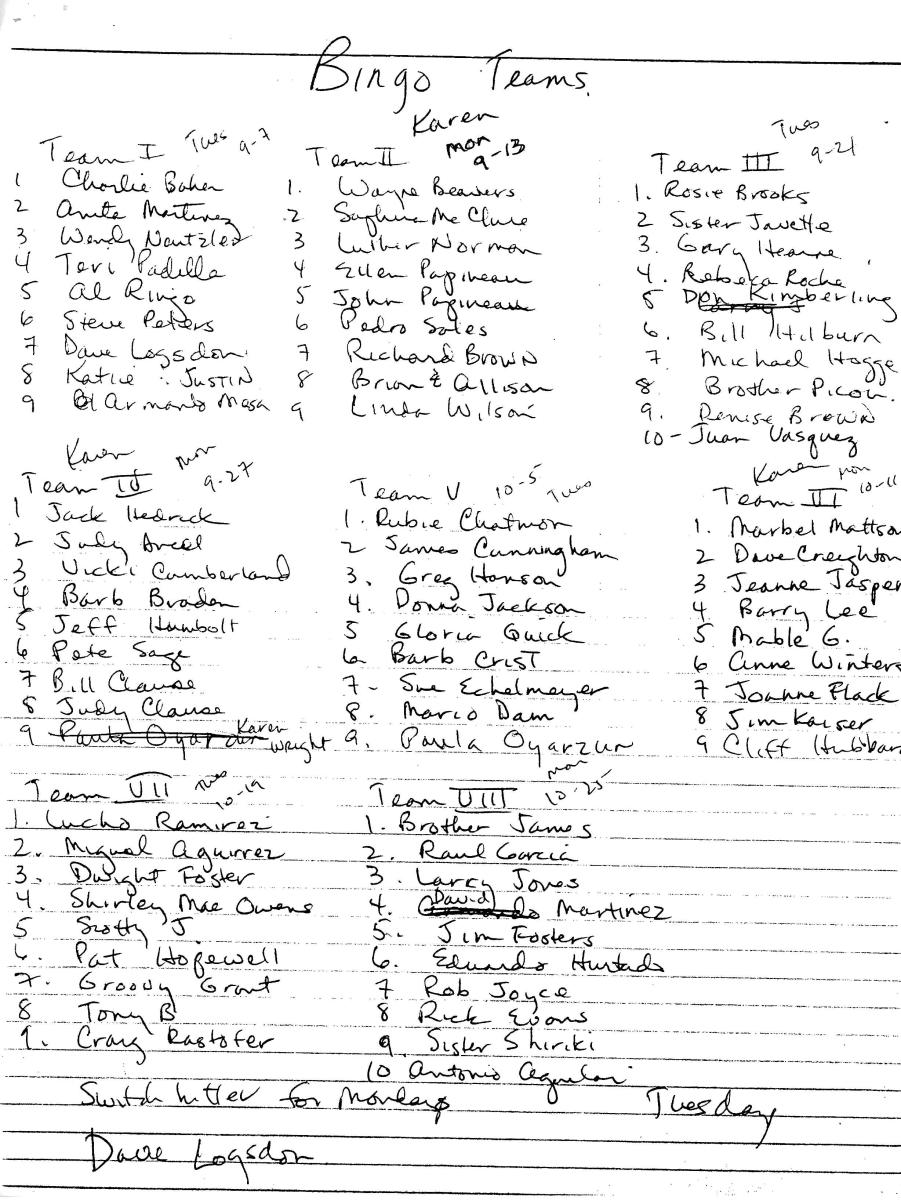 Bingo Teams.
Team I Tues 9-7
1 Charlie Baker
2 Anita Martinez
3 Wendy Nantzled
4 Teri Padilla
5 Al Ringo
6 Steve Peters
7 Dave Logsdon
8 Katie : JUSTIN
9 Armando Mesa
Karen
Team II Mon 9-13
1. Wayne Beavers
2 Sophia McClure
3 Luther Norman
4 Ellen Papineau
5 John Papineau
6 Pedro Sales
7 Richard Brown
8 Brian & Allison
9 Linda Wilson
Tues
Team III 9-21
1. Rosie Brooks
2 Sister Javette
3. Gary Hearne
4. Rebeca Roche
5 Don Kimberling
6. Bill Hilburn
7 Michael Hogge
8. Brother Picou.
9. Denise Brown
10- Juan Vasquez
Karen Mon
Team IV 9-27
1 Jack Hedrick
2 Judy Ancel
3 Vicki Cumberland
4 Barb Braden
5 Jeff Humbolt
6 Pete Sage
7 Bill Clause
8 Judy Clause
9 Paula Oyarzun Karen Wright
Team V 10-5 Tues
1. Rubie Chatmon
2 James Cunningham
3. Greg Hanson
4. Donna Jackson
5 Gloria Quick
6 Barb Crist
7- Sue Echelmeyer
8. Mario Dam
9. Paula Oyarzun
Karen Mon
Team III 10-11
1. Marbel Mattso
2 Dave Creighton
3 Jeanne Jasper
4 Barry Lee
5 Mable G.
6 Anne Winters
7 Joanne Flack
8 Jim Kaiser
9 Cliff Hubbar
Team VII Tues 10-19
1. Lucho Ramirez
2. Miguel Aguirrez
3. Dwight Foster
4. Shirley Mae Owens
5 Scotty J.
6. Pat Hopewell
7. Groovy Grant
8 Tony B
9. Craig Rastofer
Team VIII Mon 10-25
1. Brother James
2. Raul Garcia
3. Larry Jones
4. David Martinez
5. Jim Fosters
6. Eduardo Hurtado
7 Rob Joyce
8 Rick Evans
9 Sister Shiriki
10 Antonio Aguilar
Switch hitter for Mondays Tuesday
Dave Logsdon